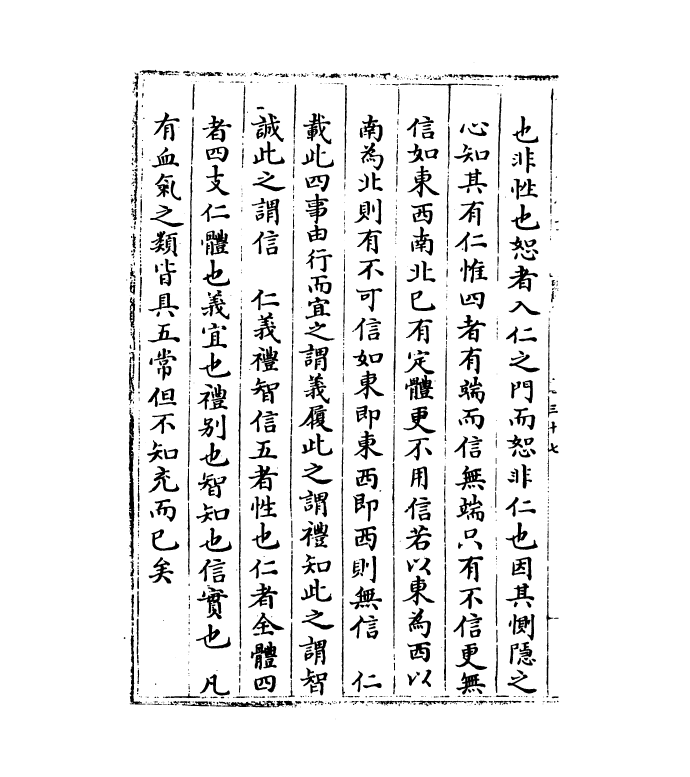 也非性也恕者入仁之門而恕非仁也因其惻隱之
心知其有仁惟四者有端而信無端只有不信更無
信如東西南北已有定體更不用信若以東為西以
南為北則有不可信如東即東西即西則無信　仁
載此四事由行而宜之謂義履此之謂禮知此之謂智
誠此之謂信　仁義禮智信五者性也仁者全體四
者四支仁體也義宜也禮别也智知也信實也　凡
有血氣之類皆具五常但不知充而已矣